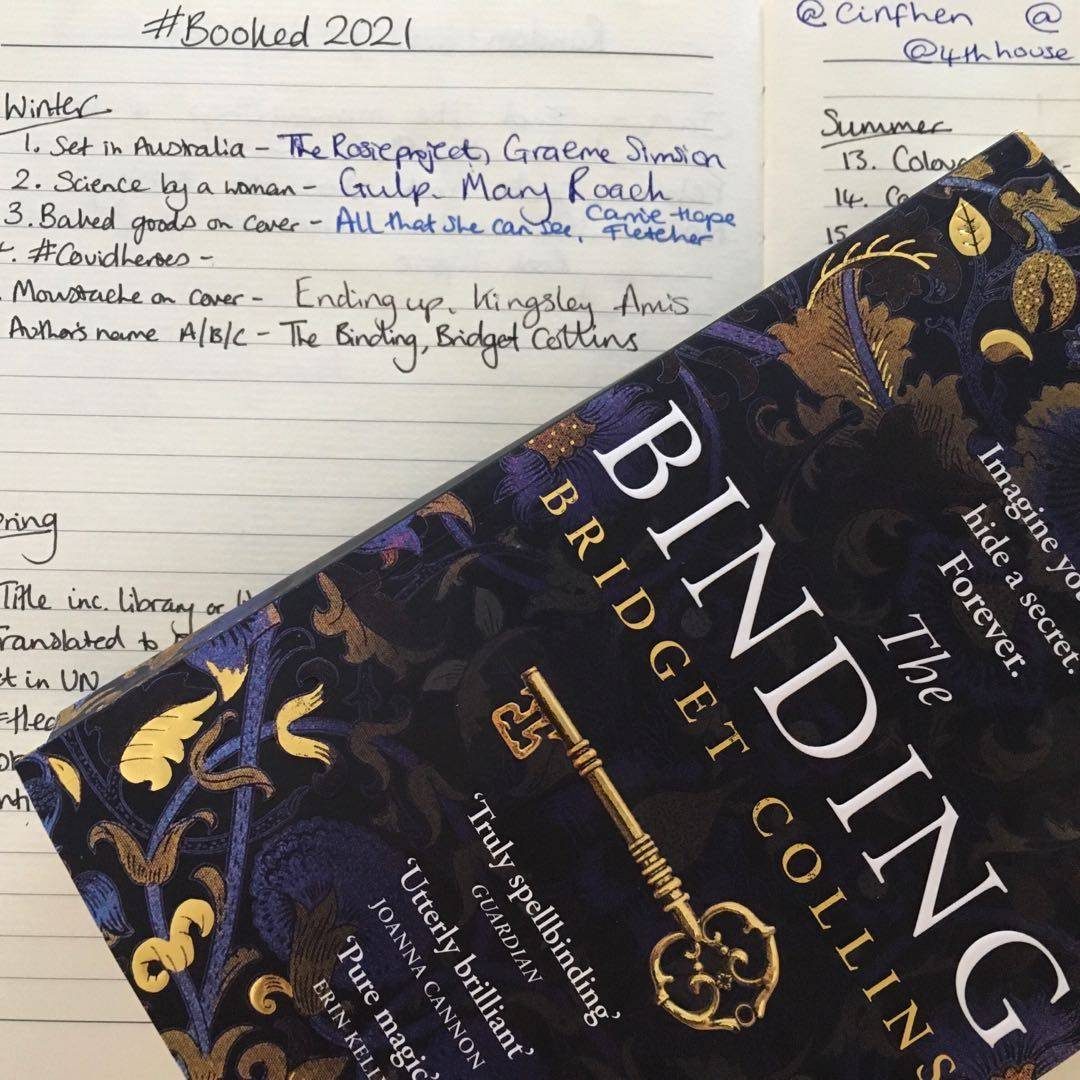 #Booked 2021
Winter
1. Set in Australia - The Rosie project, Graeme Simsion
2. Science by a woman - Gulp. Mary Roach
3. Baked goods on cover - All that she can see, Carrie Hope Fletcher
#Covidheroes -
Moustache on cover - Ending up, Kingsley Amis
Author's name A/B/C - The Binding, Bridget Collins
Title inc. library or
Translated to
in UN
@Cinfhen @
@4thhouse
Summer
13.
14.
15
The
BINDING
BRIDGET COLLINS
Imagine
hide a secret.
Forever.
'Truly spellbinding'
GUARDIAN
'Utterly brilliant'
JOANNA CANNON
'Pure magic'
ERIN KELLY